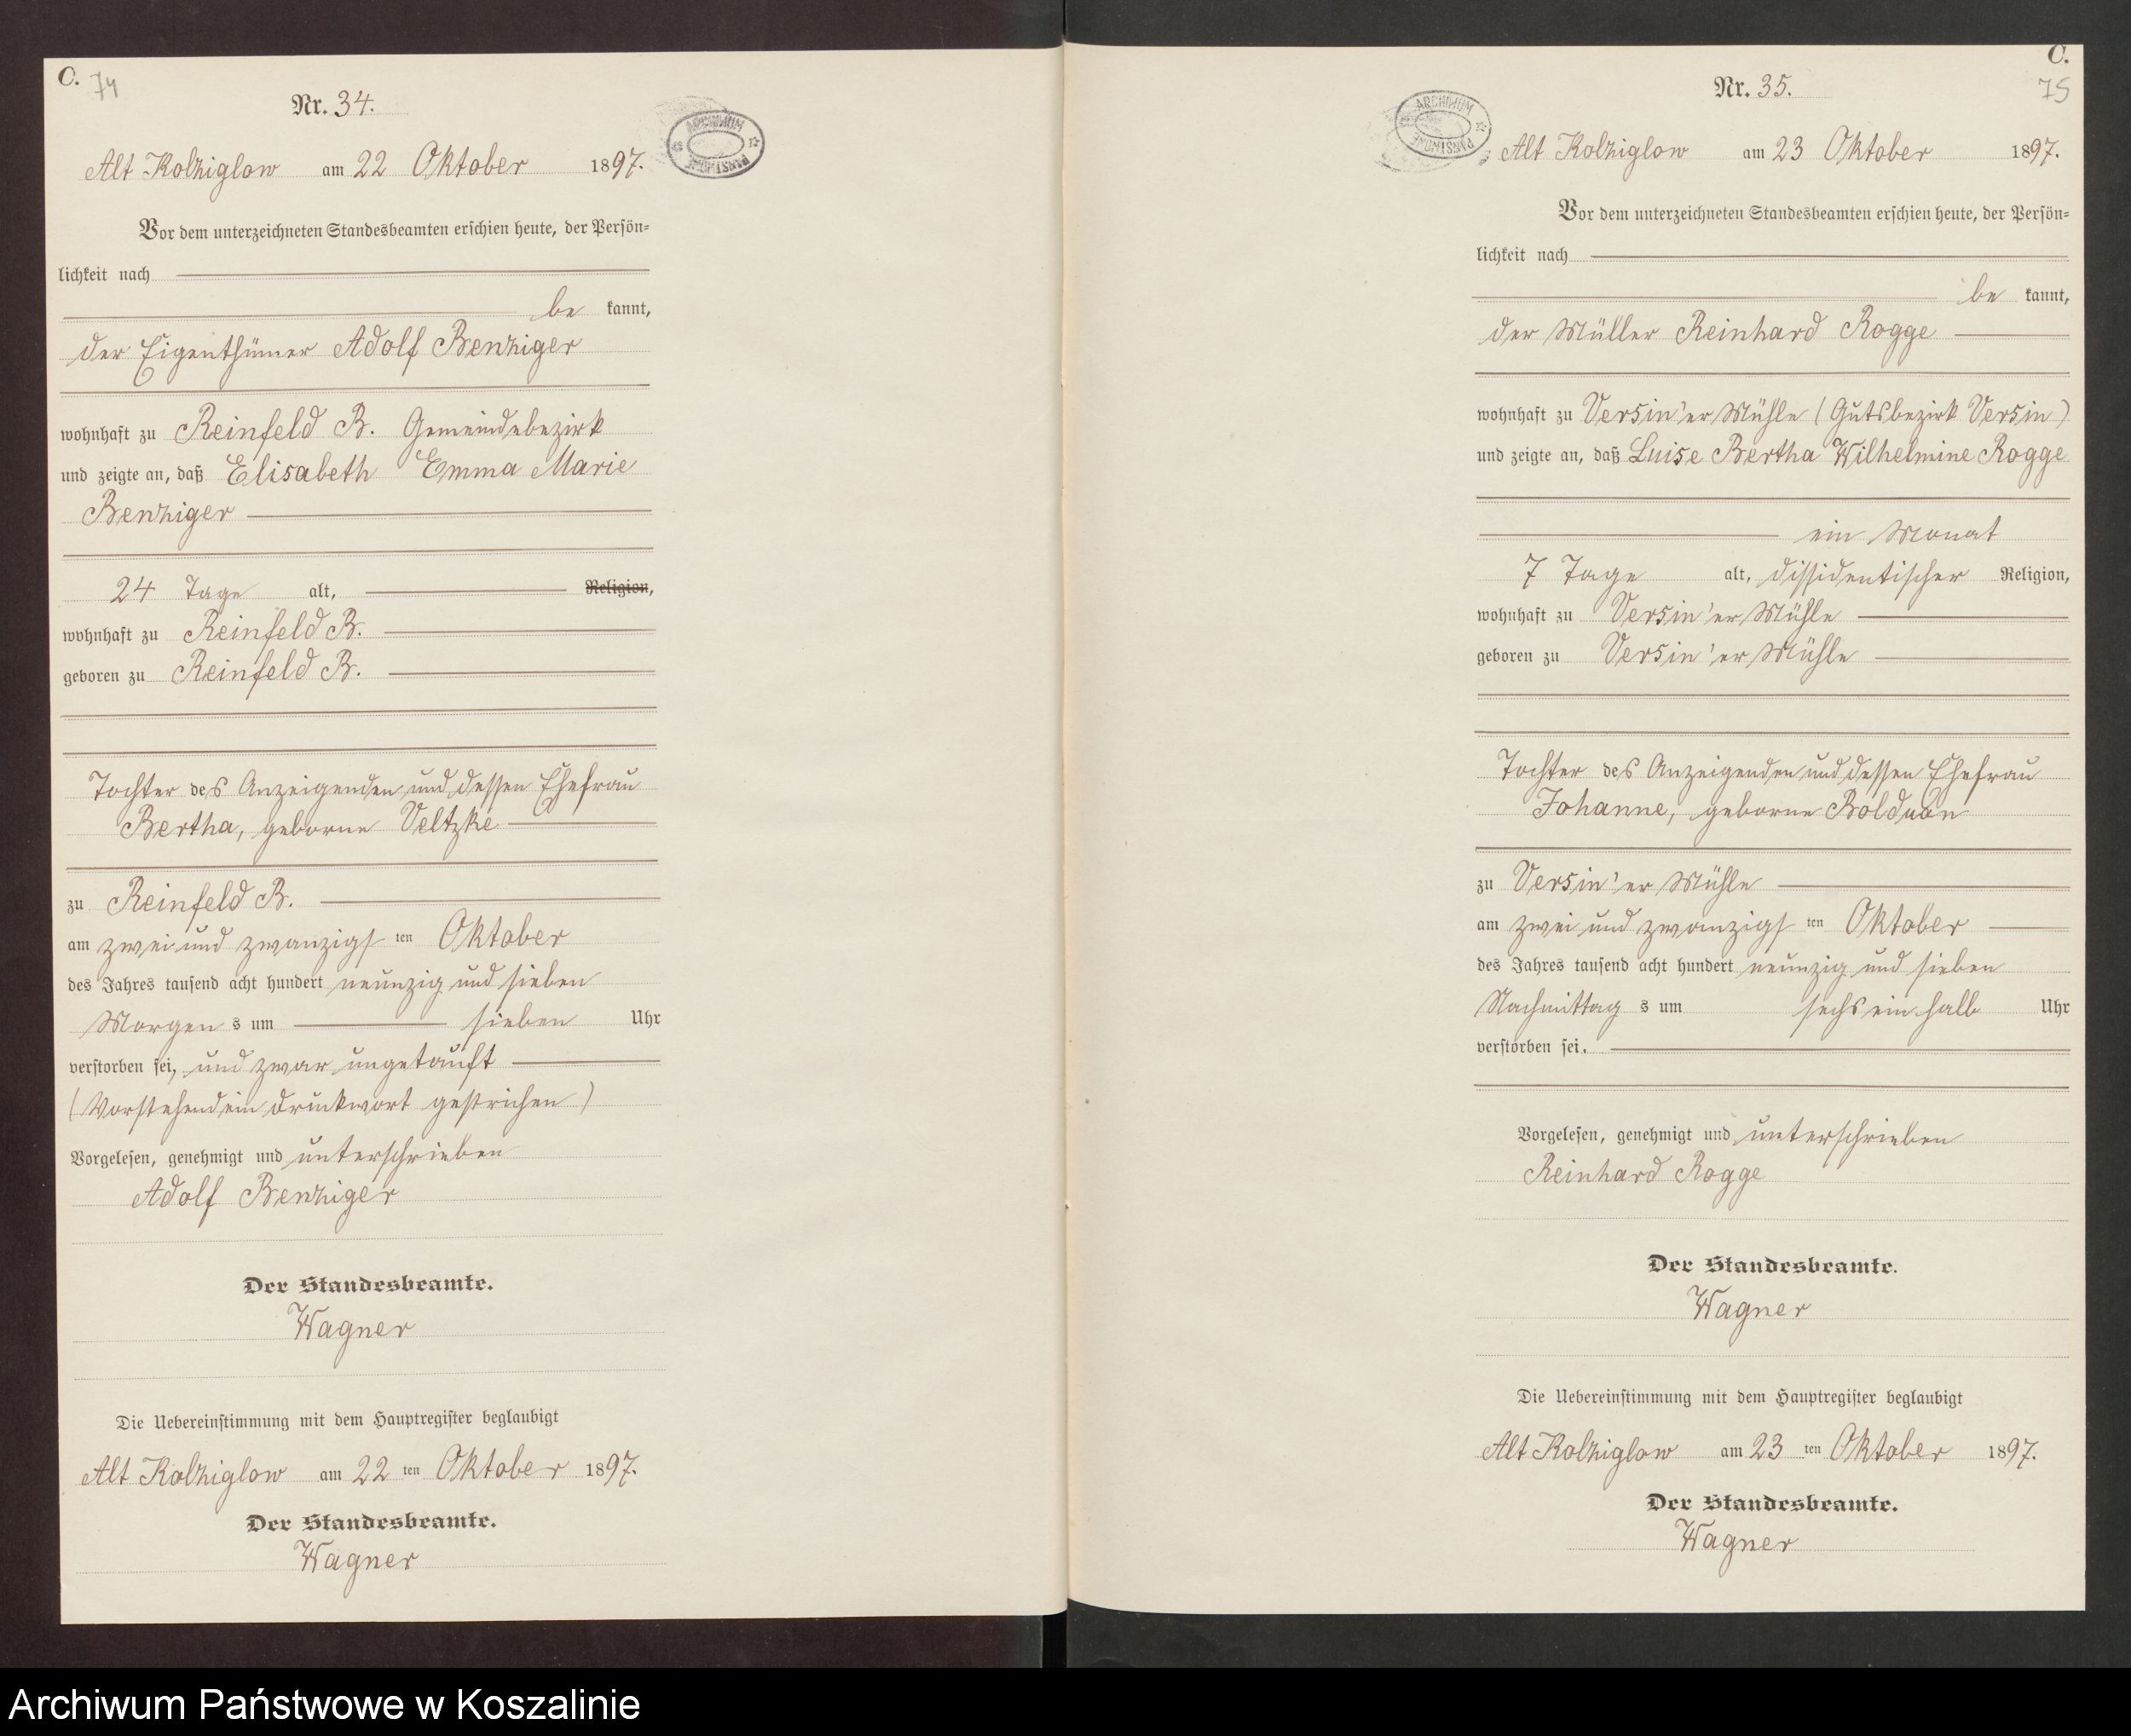 C. 74
Nr. 34.
ARCHIWUM PAŃSTWOWE
Alt Kolziglow am 22 Oktober 1897.
Vor dem unterzeichneten Standesbeamten erschien heute, der Persön-
lichkeit nach
be kannt,
der Eigenthümer Adolf Benziger
wohnhaft zu Reinfeld B. Gemeindebezirk
und zeigte an, daß Elisabeth Emma Marie
Benziger
24 Tage alt, Religion,
wohnhaft zu Reinfeld B.
geboren zu Reinfeld B.
Tochter des Anzeigenden und dessen Ehefrau
Bertha, geborne Veltzke
zu Reinfeld B.
am zwei und zwanzigs ten Oktober
des Jahres tausend acht hundert neunzig und sieben
Morgen s um sieben Uhr
verstorben sei, und zwar ungetauft
(Vorstehend ein Druckwort gestrichen)
Vorgelesen, genehmigt und unterschrieben
Adolf Benziger
Der Standesbeamte.
Wagner
Die Uebereinstimmung mit dem Hauptregister beglaubigt
Alt Kolziglow am 22 ten Oktober 1897.
Der Standesbeamte.
Wagner
C.
75
Nr. 35.
ARCHIWUM PAŃSTWOWE
Alt Kolziglow am 23 Oktober 1897.
Vor dem unterzeichneten Standesbeamten erschien heute, der Persön-
lichkeit nach
be kannt,
der Müller Reinhard Rogge
wohnhaft zu Versin'er Mühle (Gutsbezirk Versin)
und zeigte an, daß Luise Bertha Wilhelmine Rogge
ein Monat
7 Tage alt, dissidentischer Religion,
wohnhaft zu Versin'er Mühle
geboren zu Versin'er Mühle
Tochter des Anzeigenden und dessen Ehefrau
Johanne, geborne Bolduan
zu Versin'er Mühle
am zwei und zwanzigs ten Oktober
des Jahres tausend acht hundert neunzig und sieben
Nachmittag s um sechs ein halb Uhr
verstorben sei.
Vorgelesen, genehmigt und unterschrieben
Reinhard Rogge
Der Standesbeamte.
Wagner
Die Uebereinstimmung mit dem Hauptregister beglaubigt
Alt Kolziglow am 23 ten Oktober 1897.
Der Standesbeamte.
Wagner
Archiwum Państwowe w Koszalinie